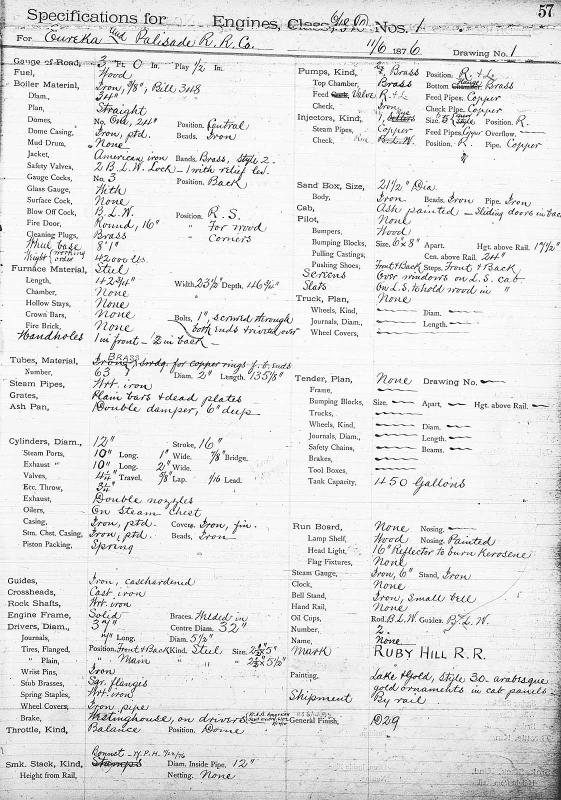 57
Specifications for Engines, Class, One Or Nos. 1
For Eureka and Palisade R. R. Co. 11/6 1876 Drawing No. 1
Gauge of Road, 3 Ft. 0 In. Play 1/2 In.
Fuel, Wood
Boiler Material, Iron, 3/8", Bill 348
Diam., 34"
Plan, Straight
Domes, No. One, 24" Position. Central
Dome Casing, Iron, ptd. Beads, Iron
Mud Drum, None
Jacket, American iron Bands. Brass, Style 2.
Safety Valves, 2 B.L.W. Lock - 1 with relief lev.
Gauge Cocks, No. 3 Position. Back
Glass Gauge, With
Surface Cock, None
Blow Off Cock, B.L.W. Position. R. S.
Fire Door, Round, 16" " For wood
Cleaning Plugs, Brass " Corners
Wheel base 8' 1"
Weight working order 42000 lbs.
Furnace Material, Steel
Length, 42 3/4" Width 23 1/2" Depth, 46 3/4"
Chamber, None
Hollow Stays, None
Crown Bars, None Bolts, 1", screwed through
Fire Brick, None both ends & riveted over
Handholes 1 in front - 2 in back -
Tubes, Material, Iron, BRASS swdg. for copper rings f.b. ends
Number, 63 Diam. 2" Length. 135 5/8"
Steam Pipes, Wrt. iron
Grates, Plain bars & dead plates
Ash Pan, Double damper, 6" deep
Cylinders, Diam., 12" Stroke, 16"
Steam Ports, 10" Long. 1" Wide. 7/8" Bridge.
Exhaust " 10" Long. 2" Wide.
Valves, 4 1/4" Travel. 5/8" Lap. 1/16 Lead.
Ecc. Throw, 3 3/4"
Exhaust, Double nozzles
Oilers, On Steam Chest
Casing, Iron, ptd. Covers. Iron, fin.
Stm. Chst. Casing, Iron, ptd. Beads, Iron
Piston Packing, Spring
Guides, Iron, casehardened
Crossheads, Cast iron
Rock Shafts, Wrt. iron
Engine Frame, Solid Braces. Welded in
Drivers, Diam., 37" Centre Diam. 32"
Journals, 7" Long. Diam. 5 1/2"
Tires, Flanged, Position. Front & Back Kind. Steel Size. 2 1/2" x 5"
" Plain, " Main " " 2 1/2" x 5 1/2"
Wrist Pins, Iron
Stub Brasses, Sqr. flanges
Spring Staples, Wrt. iron
Wheel Covers, Iron pipe
Brake, Westinghouse, on drivers
Throttle, Kind, Balance Position. Dome
Smk. Stack, Kind, Stamps Bonnet - Diam. Inside Pipe. 12"
Height from Rail, Netting. None
Pumps, Kind, Brass Position. R. & L.
Top Chamber, Brass Bottom Chamber. Brass
Feed Cock, Valve R. & L. Feed Pipes. Copper
Check, Check Pipe. Copper
Injectors, Kind, 1, Size. 5 Position. R.
Steam Pipes, Copper Feed Pipes. Overflow,
Check, B.L.W. Position. R. Pipe, Copper
Sand Box, Size, 21 1/2" Dia.
Body, Iron Beads. Iron Pipe. Iron
Cab, Ash painted - Sliding doors in back
Pilot, None
Bumpers, Wood
Bumping Blocks, Size. 6" x 8" Apart. Hgt. above Rail. 17 1/2"
Pulling Castings, Cen. above Rail. 24"
Pushing Shoes, Front & Back Steps. Front & Back
Screens Over windows on L.S. cab
Slats On L.S. to hold wood in "
Truck, Plan, None
Wheels, Kind, Diam.
Journals, Diam., Length.
Wheel Covers,
Tender, Plan, None Drawing No.
Frame,
Bumping Blocks, Size. Apart, Hgt. above Rail.
Trucks,
Wheels, Kind, Diam.
Journals, Diam., Length.
Safety Chains, Beams.
Brakes,
Tool Boxes,
Tank Capacity, 450 Gallons
Run Board, None Nosing.
Lamp Shelf, Wood Nosing. Painted
Head Light, 16" Reflector to burn Kerosene
Flag Fixtures, None
Steam Gauge, Iron, 6" Stand, Iron
Clock, None
Bell Stand, Iron, small bell
Hand Rail, None
Oil Cups, Rod. B.L.W. Guides. B.L.W.
Number, 2.
Name, None
Mark RUBY HILL R.R.
Painting, Lake & Gold, Style 30. arabesque
gold ornaments in cab panels -
Shipment By rail
General Finish, D29